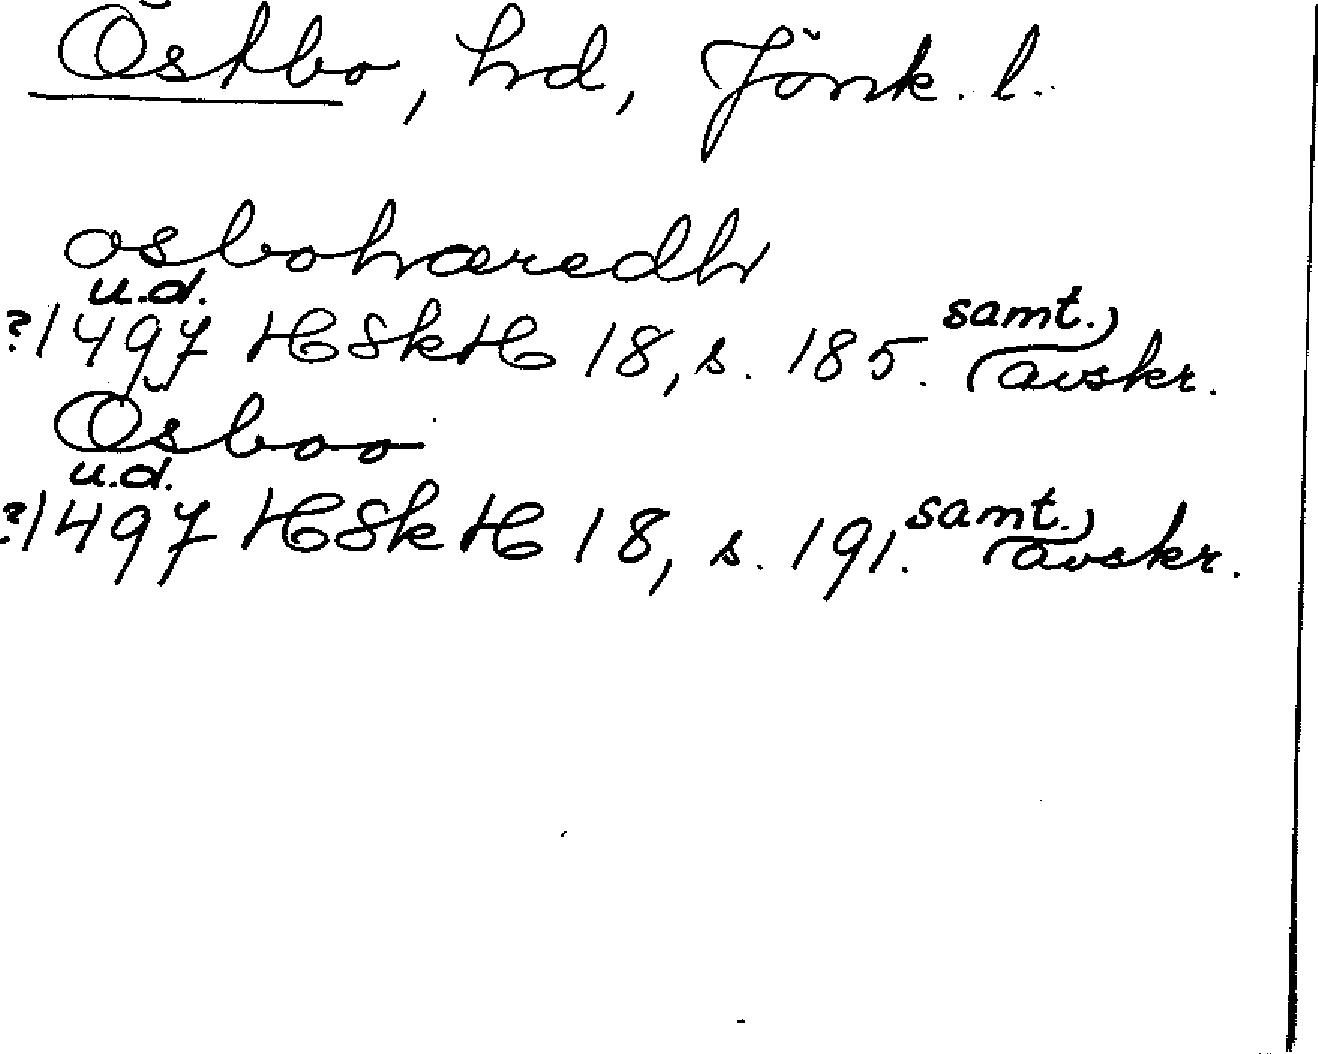 Östbo, hd, Jönk. l.
osbohæredh
u.d.
?1497 HSkH 18, s. 185. samt.) avskr.
Ösboo
u.d.
?1497 HSkH 18, s. 191. samt.) avskr.